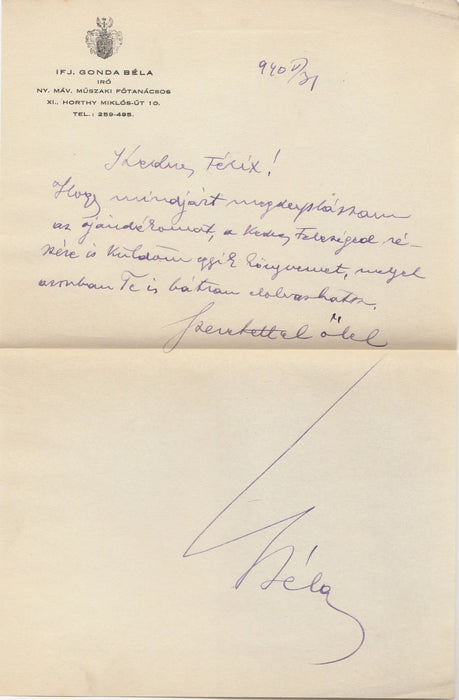 IFJ. GONDA BÉLA
IRÓ
NY. MÁV. MŰSZAKI FŐTANÁCSOS
XI., HORTHY MIKLÓS-ÚT 10.
TEL.: 259-495.
940 VI/31
Kedves Félix!
Hogy mindjárt megduplázzam
az ajándékomat, a kedves Feleséged ré-
szére is küldöm egyik könyvemet, melyet
azonban Te is bátran elolvashatsz.
Szeretettel ölel
Béla